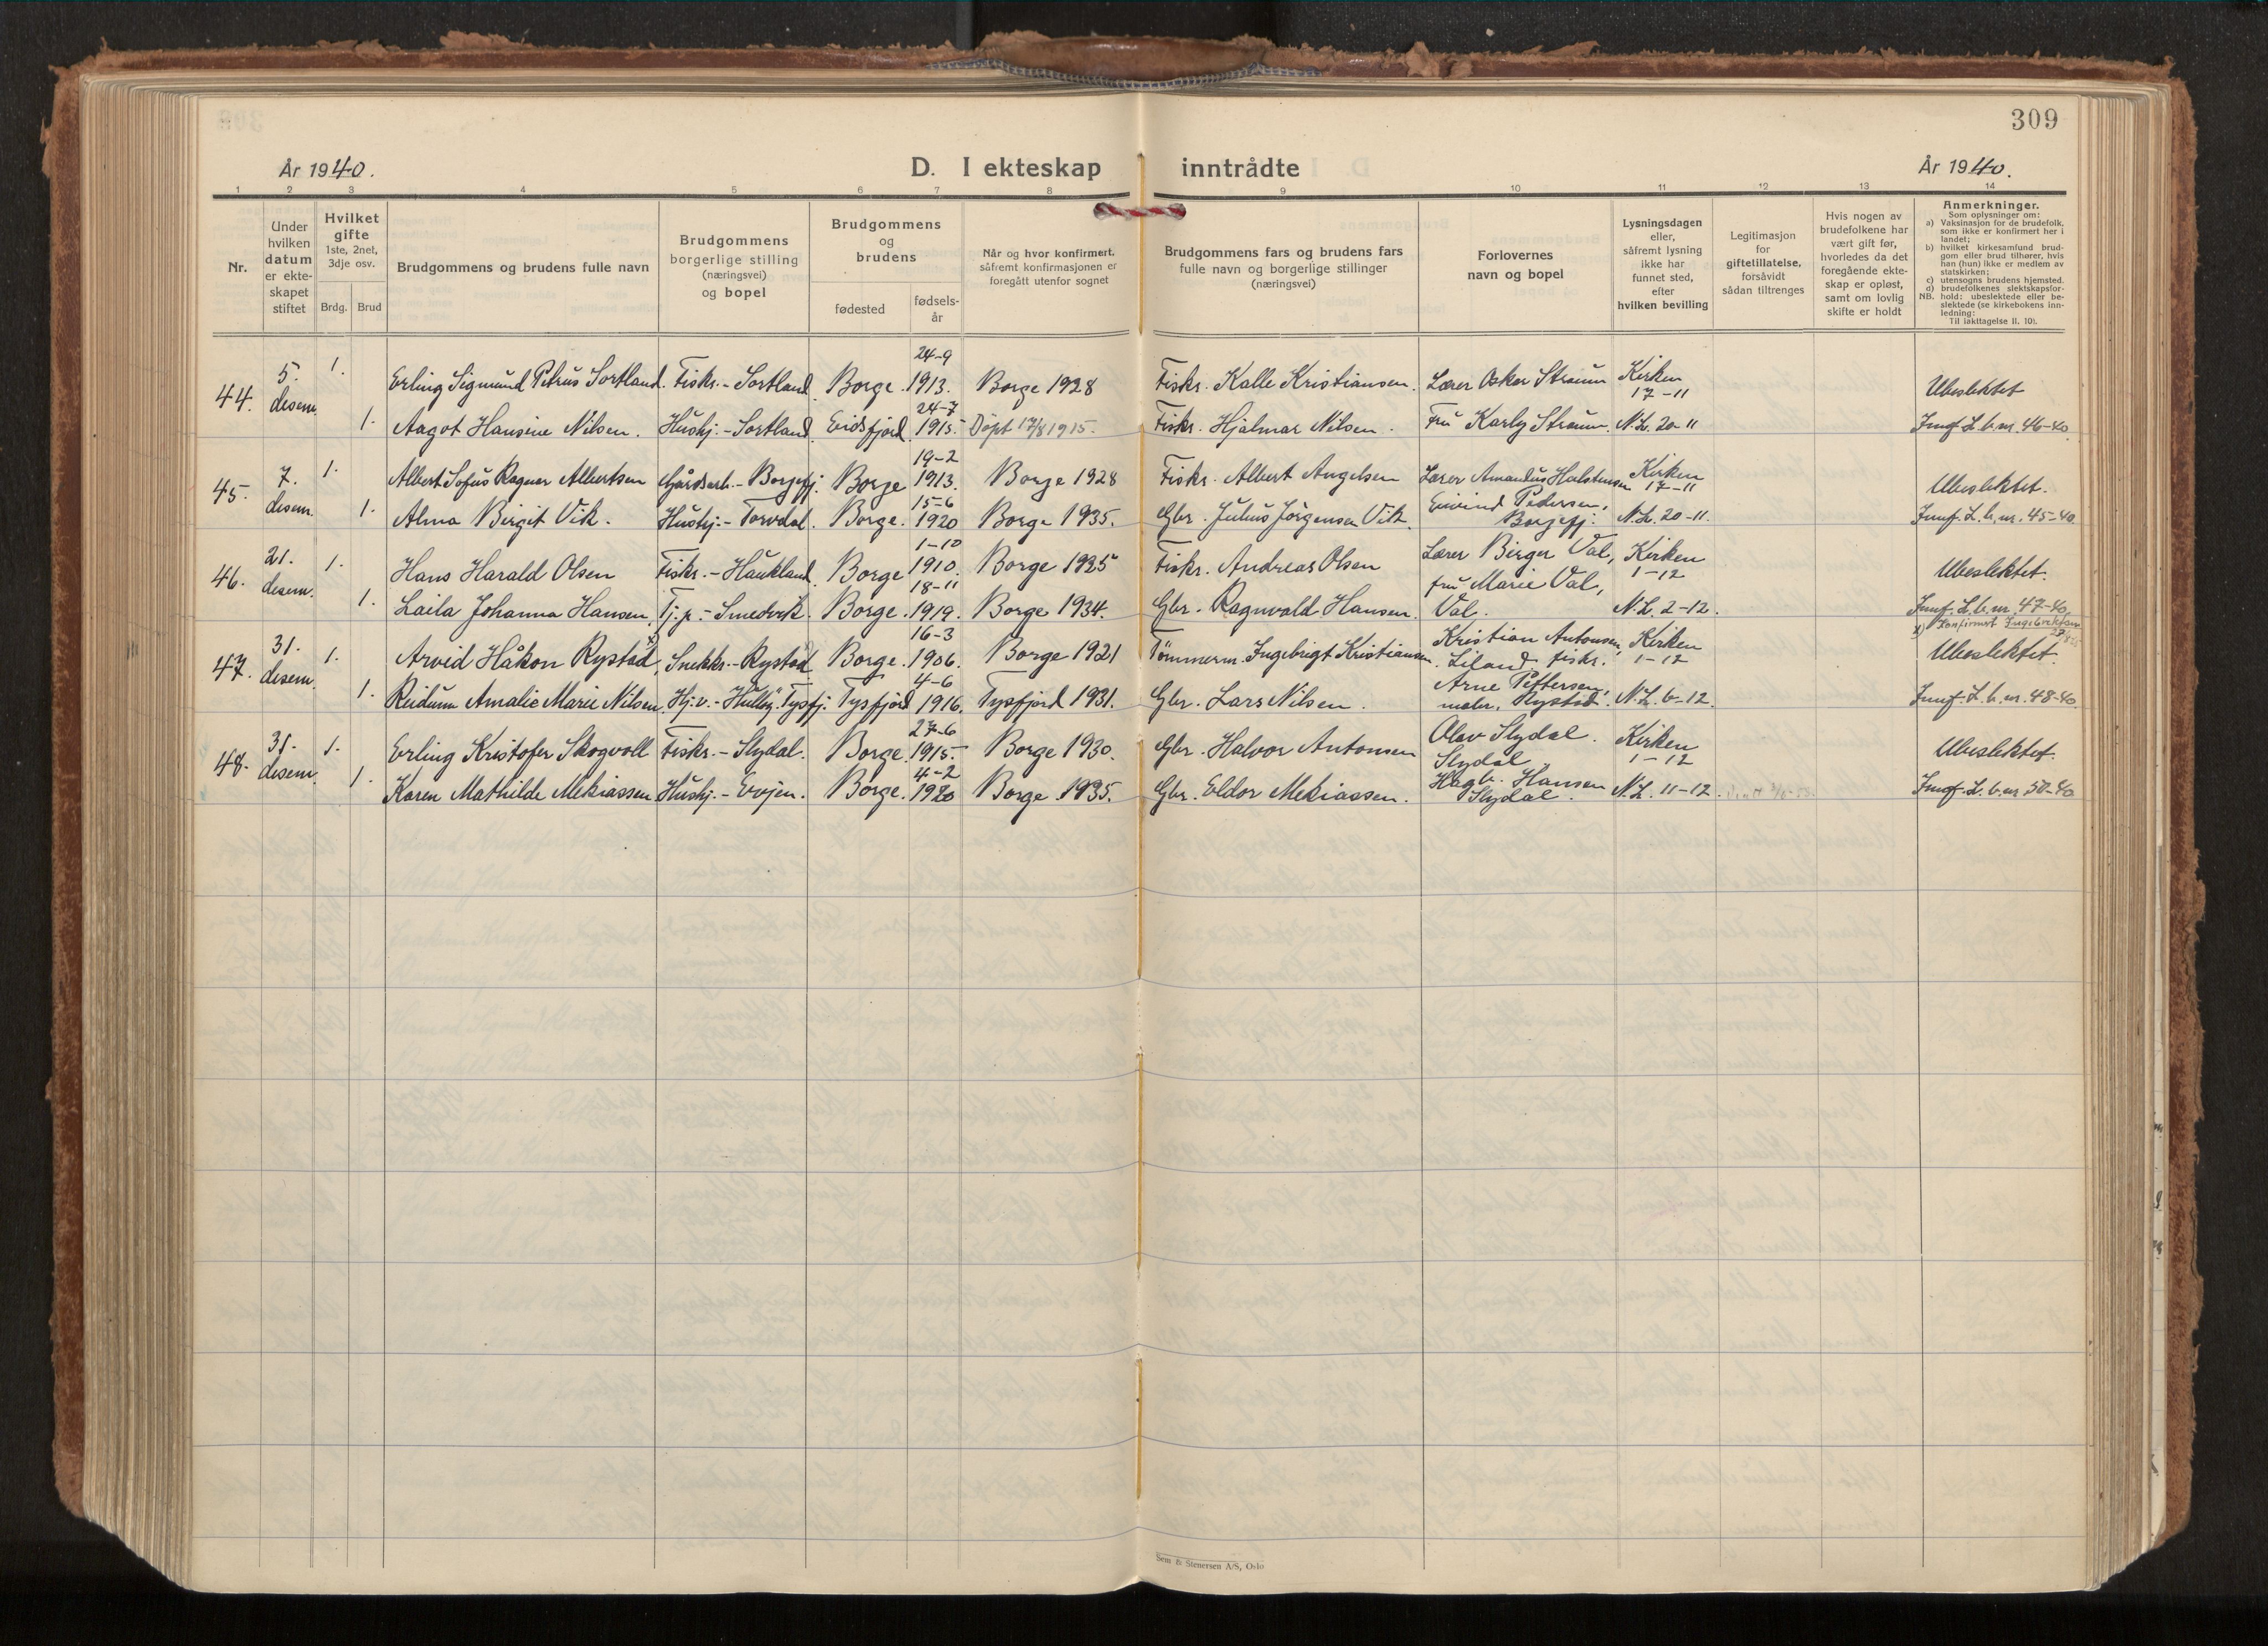 309
År 1940.
D. I ekteskap inntrådte
År 1940.
1 2 3 4 5 6 7 8 9 10 11 12 13 14
Nr.
Under
hvilken
datum
er ekte-
skapet
stiftet
Hvilket
gifte
1ste, 2net,
3dje osv.
Brdg. Brud
Brudgommens og brudens fulle navn
Brudgommens
borgerlige stilling
(næringsvei)
og bopel
Brudgommens
og
brudens
fødested
fødsels-
år
Når og hvor konfirmert,
såfremt konfirmasjonen er
foregått utenfor sognet
Brudgommens fars og brudens fars
fulle navn og borgerlige stillinger
(næringsvei)
Forlovernes
navn og bopel
Lysningsdagen
eller,
såfremt lysning
ikke har
funnet sted,
efter
hvilken bevilling
Legitimasjon
for
giftetillatelse,
forsåvidt
sådan tiltrenges
Hvis nogen av
brudefolkene har
vært gift før,
hvorledes da det
foregående ekte-
skap er opløst,
samt om lovlig
skifte er holdt
Anmerkninger.
Som oplysninger om:
a) Vaksinasjon for de brudefolk,
som ikke er konfirmert her i
landet;
b) hvilket kirkesamfund brud-
gom eller brud tilhører, hvis
han (hun) ikke er medlem av
statskirken;
c) utensogns brudens hjemsted.
d) brudefolkenes slektskapsfor-
NB. hold: ubeslektede eller be-
slektede (se kirkebokens inn-
ledning:
Til iakttagelse II. 10).
44. 5. desem. 1. Erling Sigmund Petrus Sortland. Fiskr. - Sortland. Borge. 24-9 1913. Borge 1928 Fiskr. Kalle Kristiansen. Lærer Oskar Straum Kirken 17-11 Ubeslektet
1. Aagot Hansine Nilsen. Hushj. - Sortland. Eidsfjord. 24-7 1915. Döpt 17/8 1915. Fiskr. Hjalmar Nilsen. Fru Karly Straum. N.L. 20-11 Jmnf. L.b.nr. 46-40
45. 7. desem. 1. Albert Sofus Ragner Albertsen Gårdsarb. - Borgefj. Borge 19-2 1913. Borge 1928 Fiskr. Albert Angelsen Lærer Amandus Halstensen Kirken 17-11 Ubeslektet.
1. Alma Birgit Vik. Hushj. - Torvdal. Borge. 15-6 1920 Borge 1935. Gbr. Julius Jörgensen Vik. Eivind Pedersen, Borgefj: N.L. 20-11. Jmnf. L.b.nr. 45-40
46. 21. desem. 1. Hans Harald Olsen Fiskr. - Haukland. Borge 1-10 1910. Borge 1925 Fiskr. Andreas Olsen Lærer Birger Val, Kirken 1-12 Ubeslektet.
1. Laila Johanna Hansen. Tj.p. - Smedvik. Borge. 18-11 1919. Borge 1934. Gbr. Ragnvald Hansen. fru Marie Val, Val. N.L. 2-12. Jmnf. L.b.nr. 47-40.
x) Konfirmert Ingebriktsen
47. 31. desem. 1. Arvid Håkon Rystad, Snekkr. - Rystad. Borge. 16-3 1906. Borge 1921 Tømmerm. Ingebrigt Kristiansen. Kristian Antonsen, Liland. fiskr. Kirken 1-12 Ubeslektet.
1. Reidunn Amalie Marie Nilsen. Hj.v. - Tysfj. Tysfjord 4-6 1916. Tysfjord 1931. Gbr. Lars Nilsen. Arne Pettersen, maler, Rystad. N.L. 6-12. Jmnf. L.b.nr. 48-40.
48. 31. desem. 1. Erling Kristofer Skogvoll Fiskr. - Slydal. Borge. 27-6 1915. Borge 1930. Gbr. Halvor Antonsen Olav Slydal. Slydal. Kirken 1-12 Ubeslektet.
1. Karen Mathilde Mekiassen Hushj. - Evjen. Borge. 4-2 1920 Borge 1935. Gbr. Eldor Mekiassen. Hagb. Hansen Slydal. N.L. 11-12. Jmnf. L.b.nr. 50-40
Sem & Stenersen A/S, Oslo